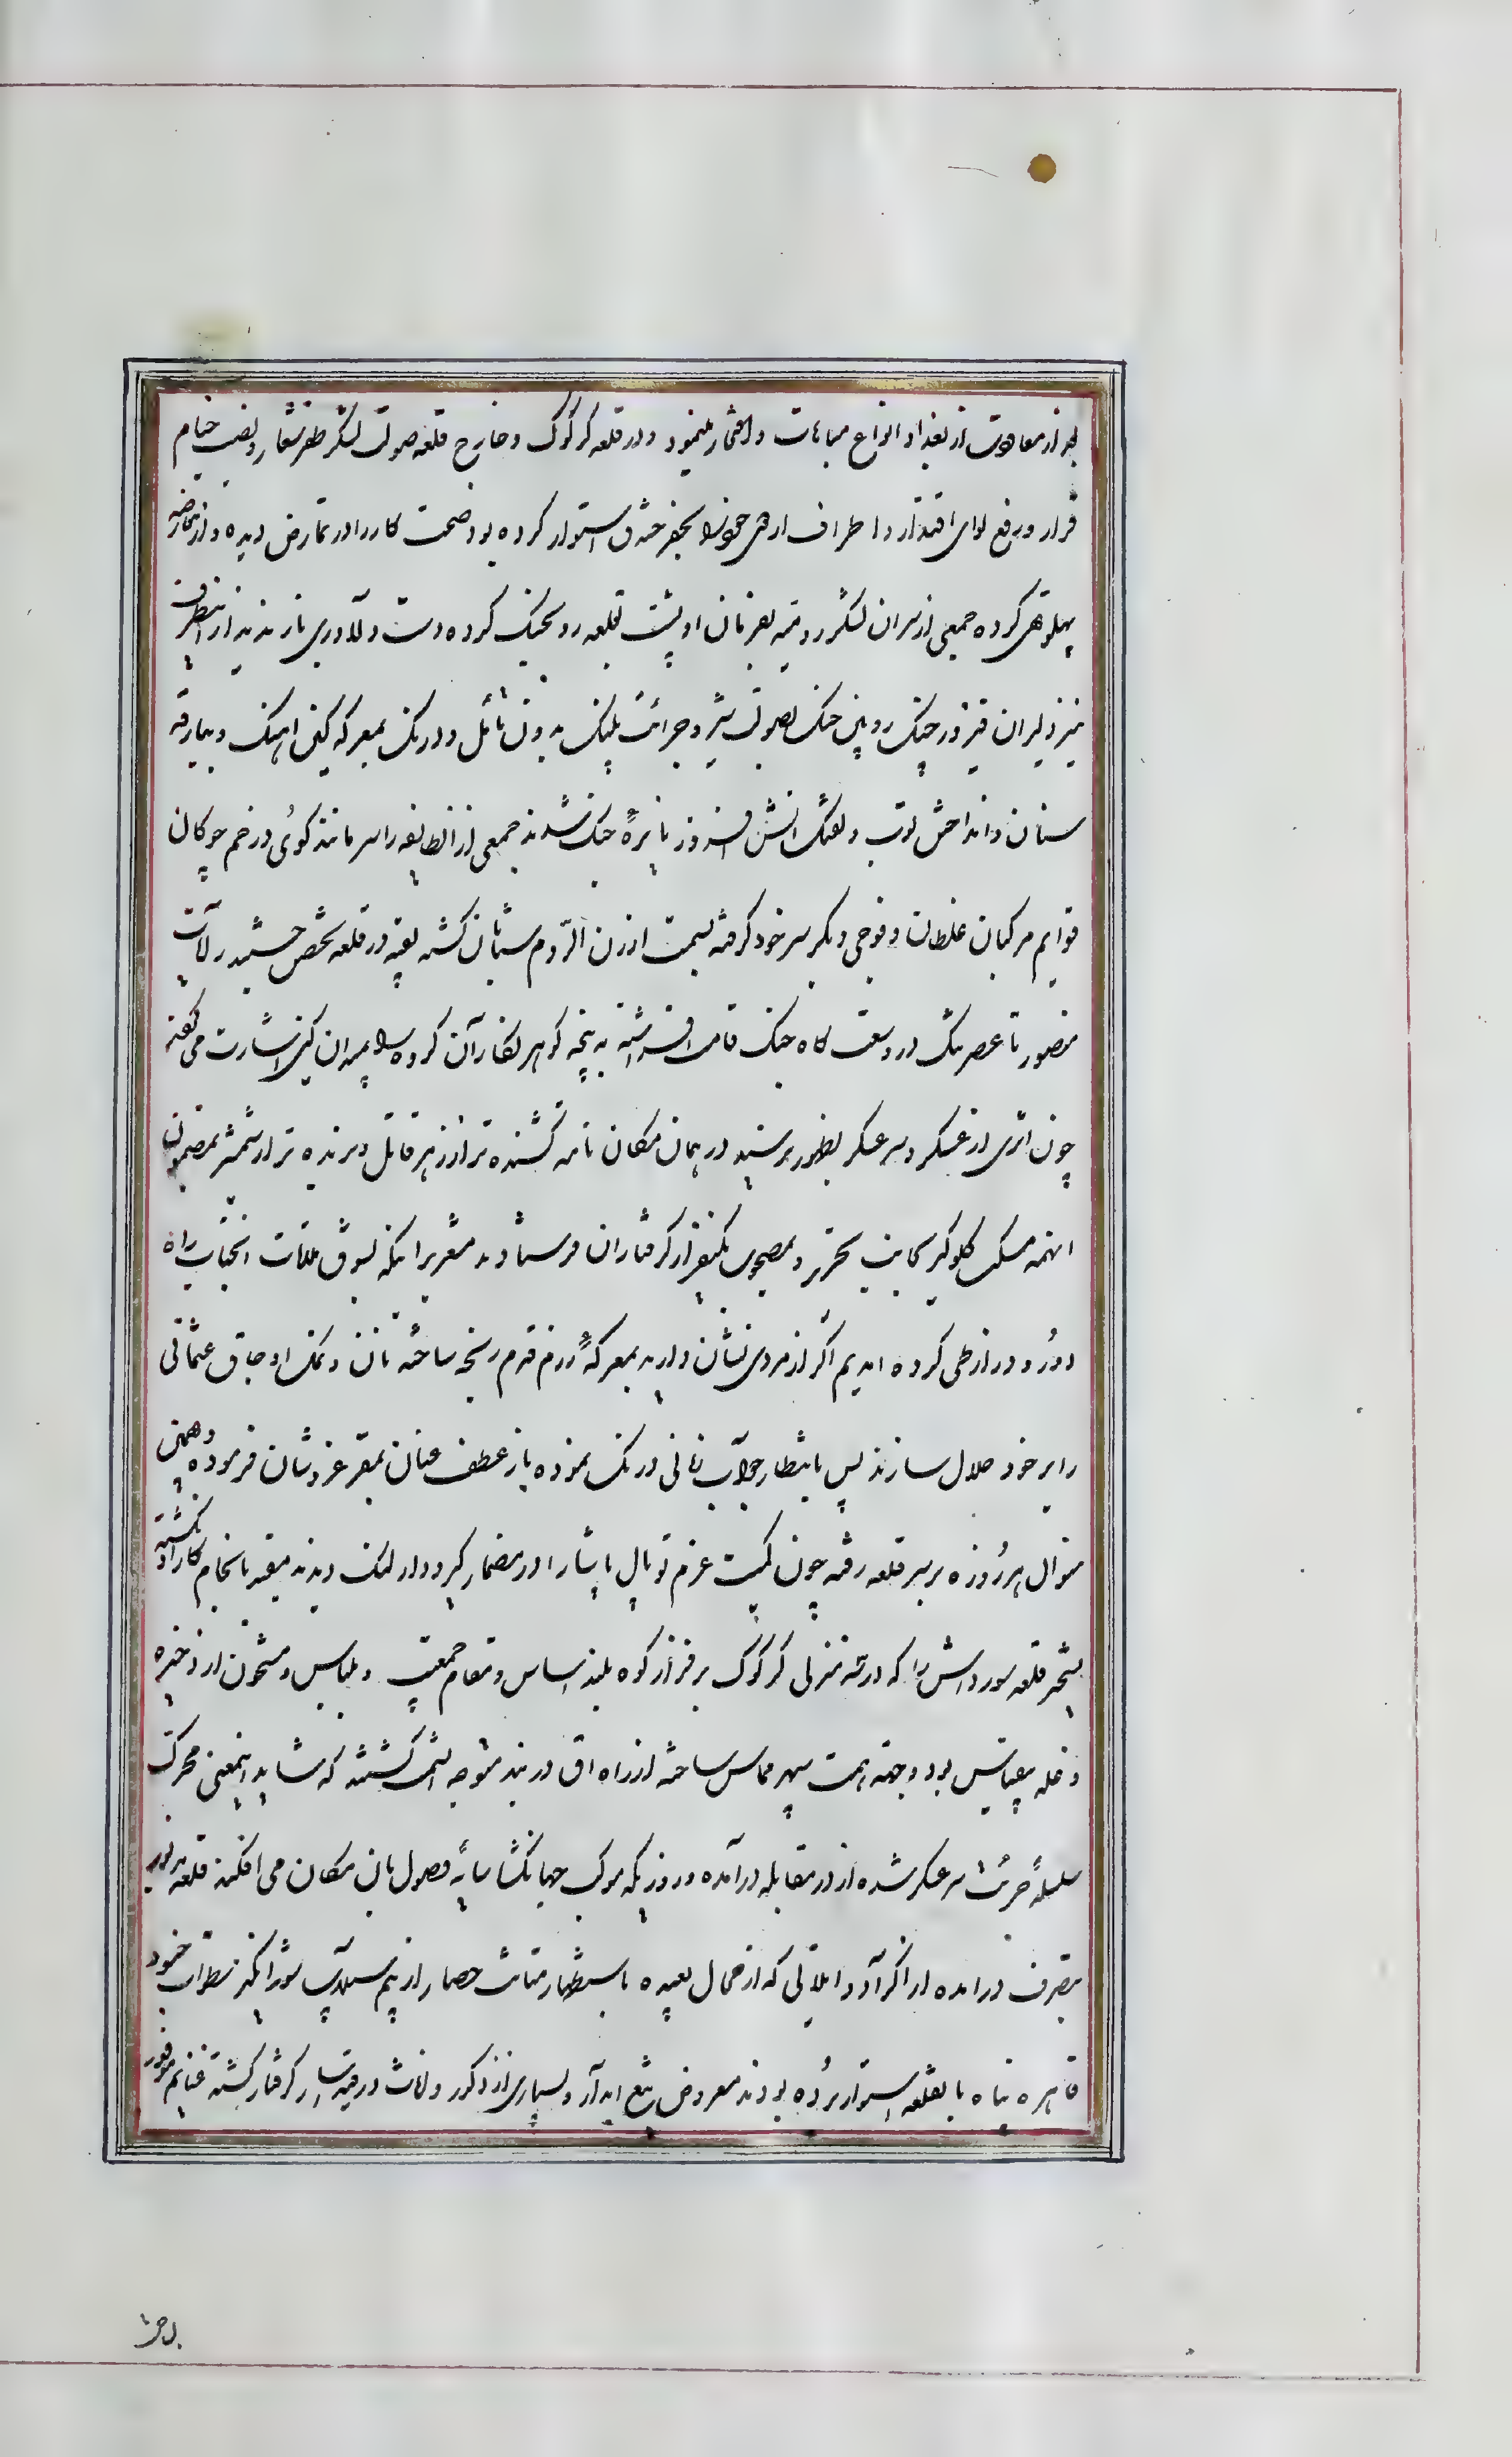 بعد از معاودت از بغداد انواع مباهات و افتخار مینمود و در قلعه کرکوک و خارج قلعه صولت لشکر ظفر شعار و نصب خیام
قرار و رفع لوای اقتدار و اطراف اردوی خود را بحفر خندق استوار کرده بود صحت کار را در تمارض دیده و از معارضه
پهلو تهی کرده جمعی از سران لشکر رومیه بفرمان او پشت بقلعه رو بجنک کرده دست دلاوری یازیدند از اینطرف
نیز دلیران فیروز چنک رویین چنک بصولت شیر و جرات پلنک بدون تامل و درنک بمعرکه کین اهنک و ببارقه
سنان و انداختن توپ و تفنک اتش افروز نایره جنک شدند جمعی از انطایفه را سر مانند کوی در خم چوکان
قوایم مرکبان غلطان و فوجی دیکر سر خود کرفته بسمت ارزن الروم شتابان کشته بقیه در قلعه متحصن جستند رایات
منصور تا عصر تنک در وسعت کاه جنک قامت افراشته به پنجه کوهر نکار آن کروه را بمیدان کین اشارت می کفت
چون اثری از عسکر و سرعسکر بظهور نرسید در همان مکان نامه کشنده تر از زهر قاتل و برنده تر از شمشیر بمضمون
اینهمه مسکت کلوکیر بجانب تحریر و بمصحوب یکنفر از کرفتاران فرستادند مشعر براینکه بشوق ملاقات انجناب راه
دور و دراز طی کرده ایم اکر از مردی نشان دارید بمعرکه رزم قدم رنجه ساخته نان و نمک اوجاق عثمانی
را بر خود حلال سازند پس بانتظار جواب زمانی درنک نموده باز عطف عنان بمقر عز و شان فرموده و همین
منوال هر روزه بر سر قلعه رفته چون کمیت عزم توپال پاشا را در مضمار کیرودار لنک دیدند مقید بانجام کار او نکشته
بتسخیر قلعه سورداش را که در شه منزلی کرکوک بر فراز کوه بلند اساس و مقام جمعیت و بلباس و مشحون از ذخیره
و غله بیقیاس بود وجهه همت سپهر مماس ساخته از راه اق دربند متوجه انسمت کشتند که شاید اینمعنی محرک
سلسله جرات سرعسکر شده از در مقابله درآمده و روزیکه موکب جهانکشا سایه وصول بان مکان می افکند قلعه
بتصرف درامده از اکراد و ایلاتی که از محال بعیده باستظهار متانت حصار از بیم سیلاب شورانکیز سطوات جنود
قاهره پناه بانقلعه استوار برده بودند معروض تیغ ابدار و بسیاری از ذکور و اناث در قید اسار کرفتار کشته غنایم موفور